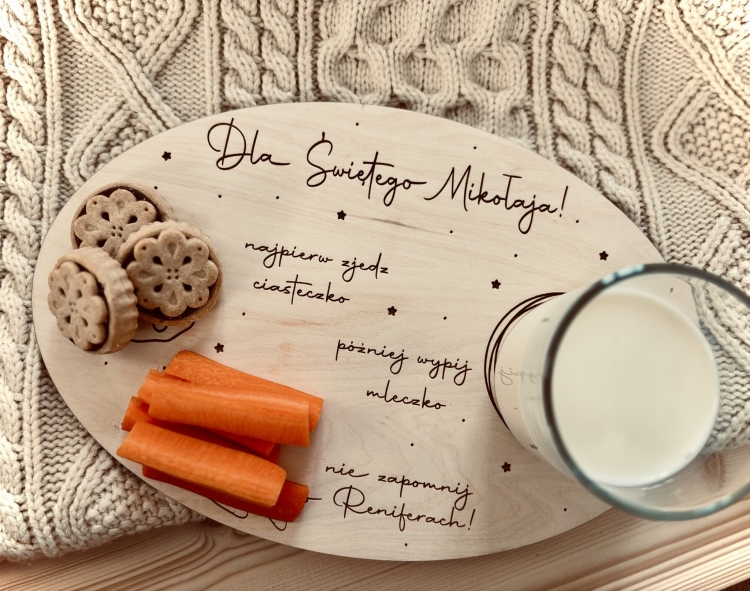 Dla Świętego Mikołaja!
najpierw zjedz
ciasteczko
później wypij
mleczko
nie zapomnij
Reniferach!